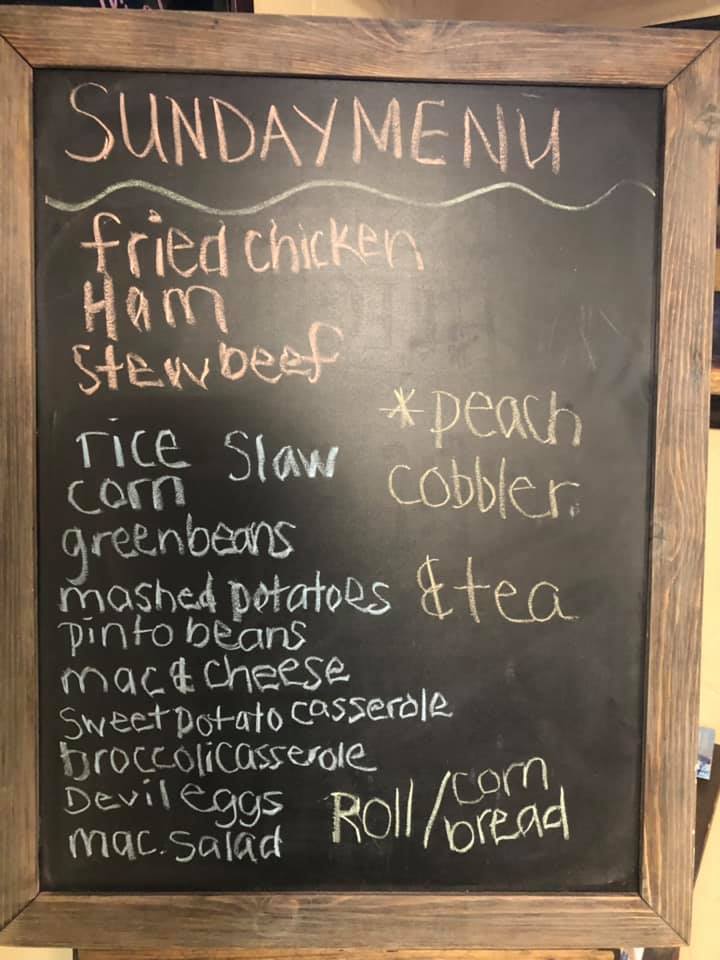 SUNDAY MENU
fried chicken
Ham
Stew beef
rice slaw
corn
greenbeans
mashed potatoes
pinto beans
mac & cheese
sweet potato casserole
broccoli casserole
Devil eggs
mac. salad
*peach
cobbler
& tea
Roll/corn
bread